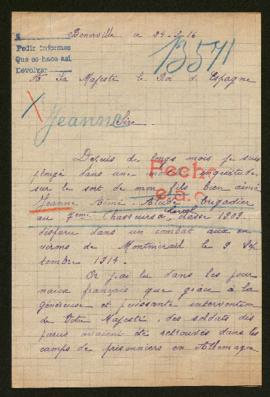 Bonneville ce 24-5-16
Pedir informes
Que se haga así
Devolver
13571
A Sa Majesté le Roi d'Espagne
Jeanne
Sire
Depuis de longs mois je suis
plongé dans une inquiétude
sur le sort de mon fils bien aimé
Jeanne Aimé Brigadier
au Chasseurs à cheval classe 1909
disparu dans un combat aux en-
virons de Montmirail le 9 Sep-
tembre 1914.
Fech
Or j'ai lu dans les jour-
naux français que grâce à la
généreuse et puissante intervention
de Votre Majesté, des soldats dis-
parus avaient été retrouvés dans les
camps de prisonniers en Allemagne